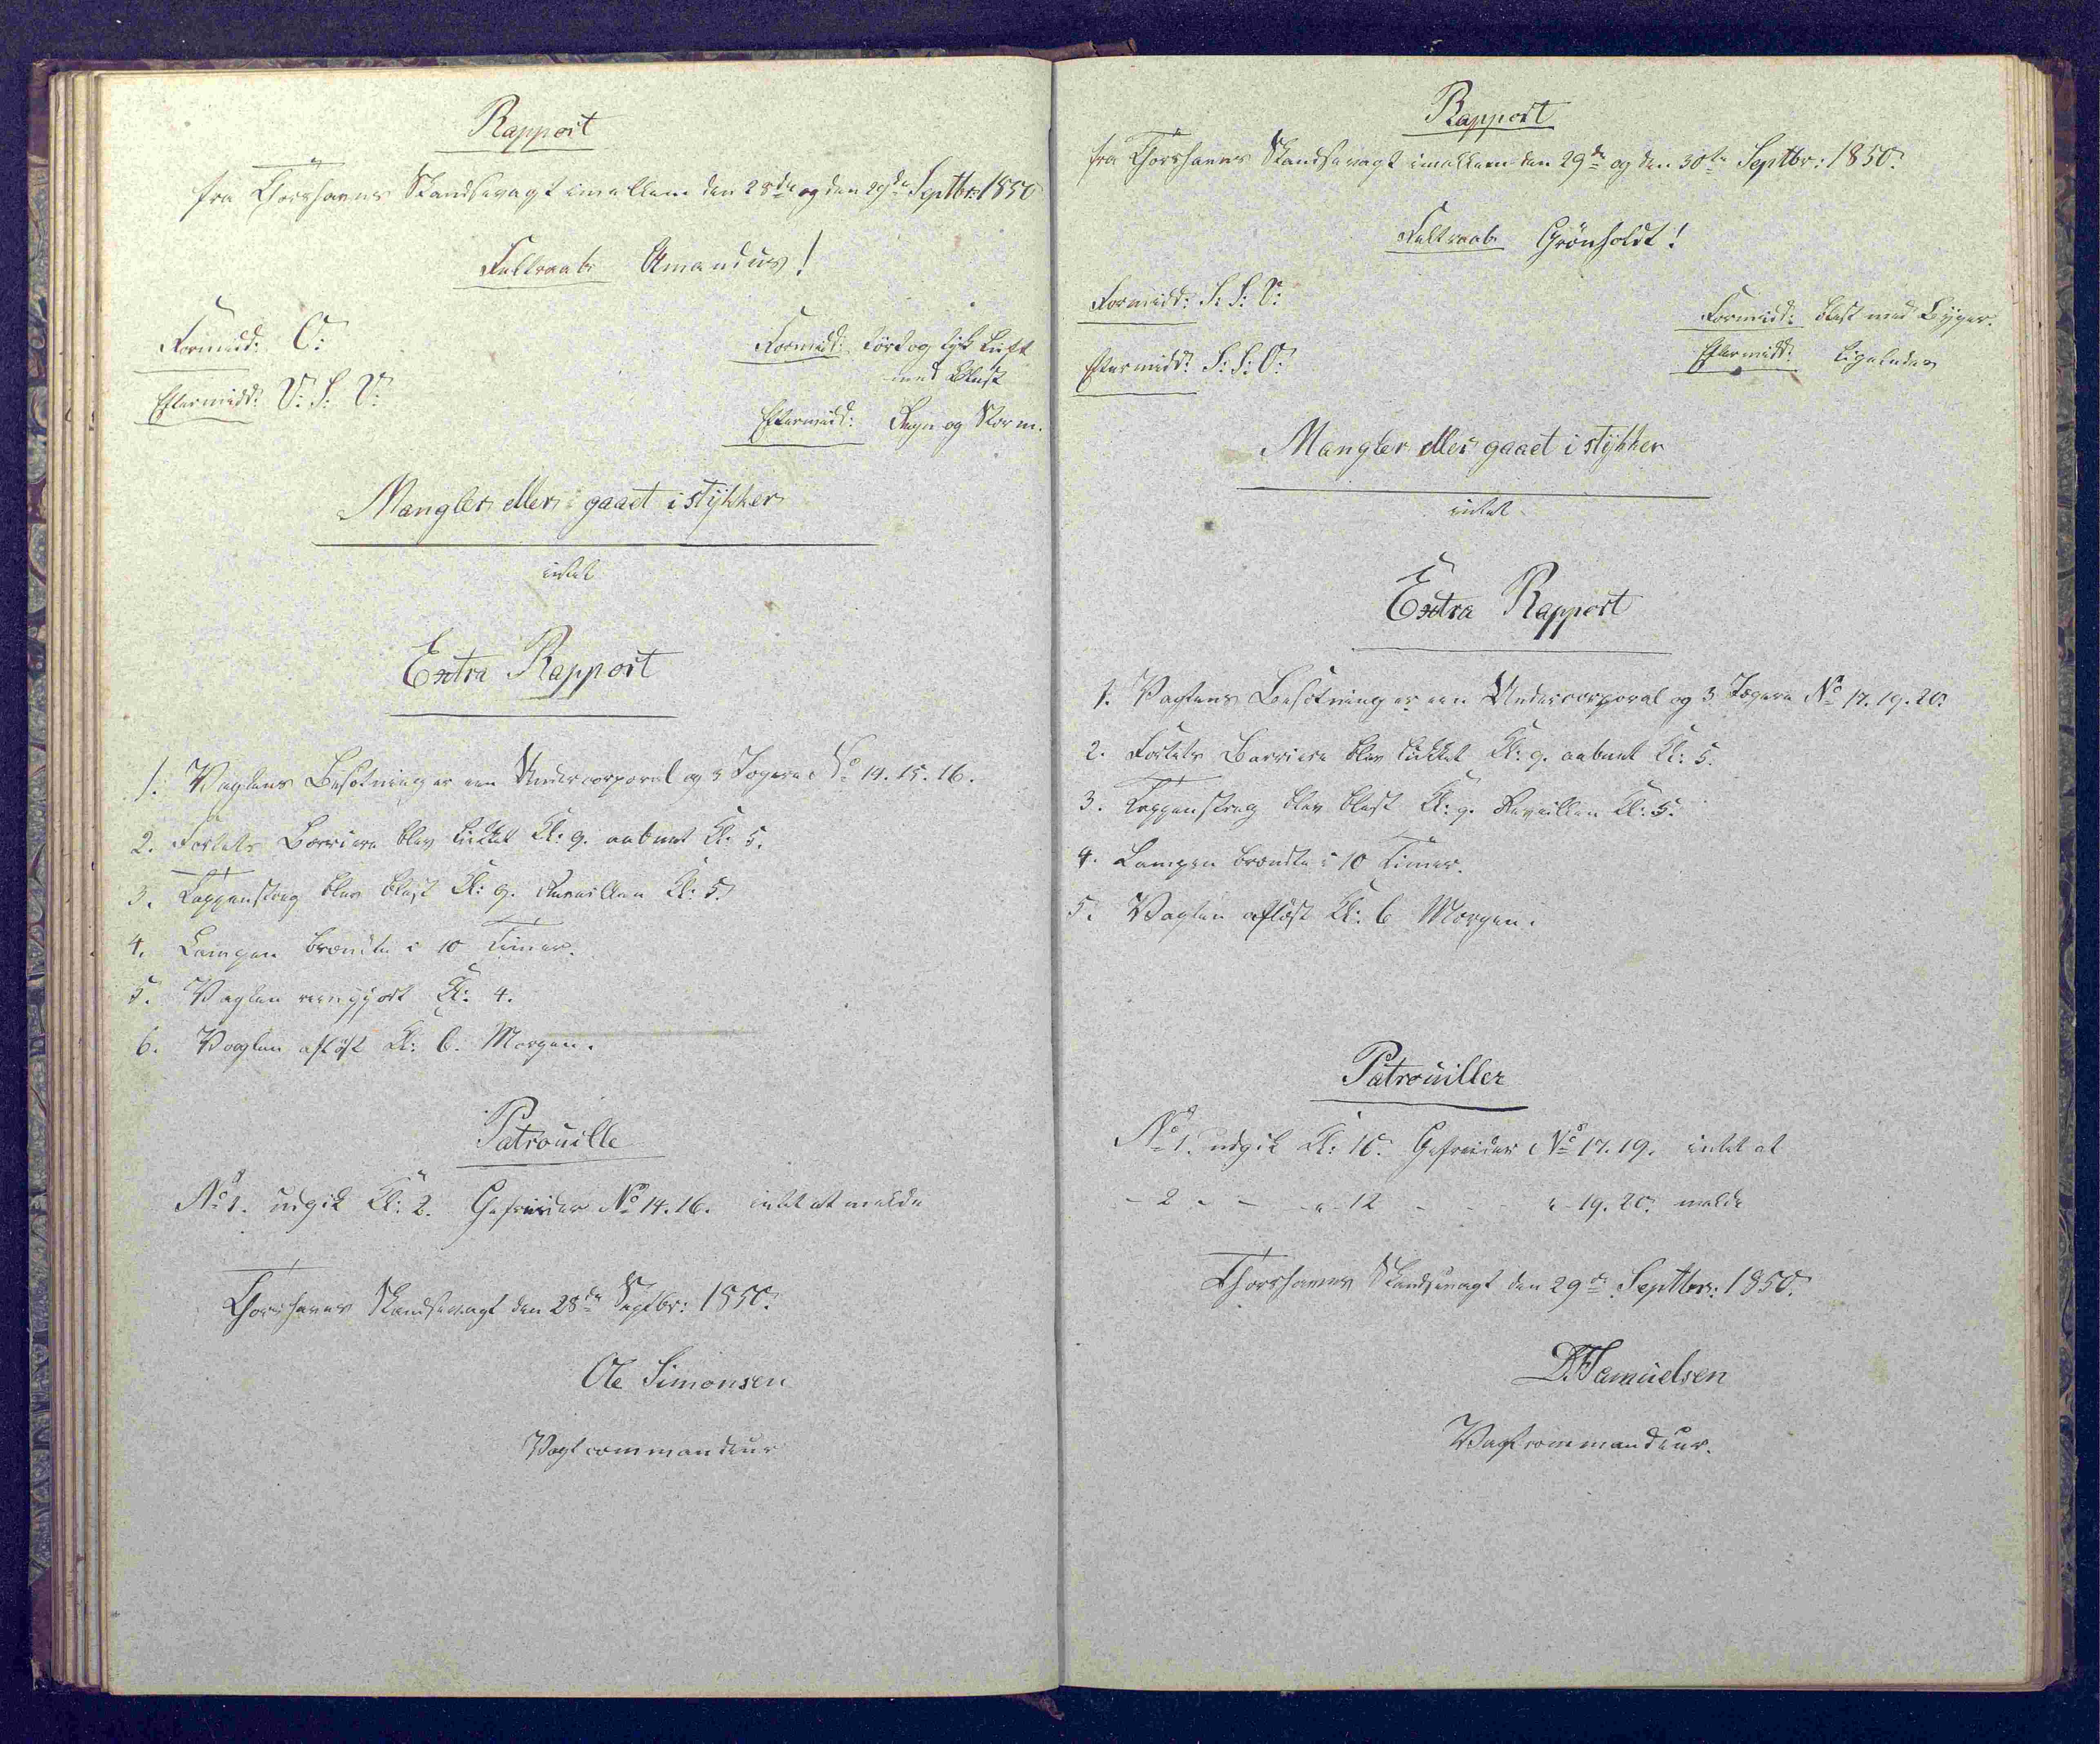 Rapport
fra Thorshavns Skandsevagt imellem den 28de og den 29de Septbr: 1850
Feltraab Amandus!
Formidd: O:
Formidd: tört og tyk Luft
med Blæst
Eftermidd: V: S: V:
Eftermidd: Regn og Storm.
Mangler eller gaaet i stÿkker
intet
Extra Rapport
1. Vagtens Besætning er een Undercorporal og 3 Jægere No 14. 15. 16.
2. Fortets Barriere blev lukket Kl: 9. aabnet Kl: 5.
3. Tappenstreg blev blæst Kl: 9. Reveillen Kl: 5.
4. Lampen brændte i 10 Timer.
5. Vagten reengjort Kl: 4.
6. Vagten aflöst Kl: 6. Morgen.
Patrouille
No 1. udgik Kl: 2. Gefreider No 14. 16. intet at melde
Thorshavns Skandsevagt den 28de Septbr: 1850.
Ole Simonsen
Vagtcommandeur
Rapport
fra Thorshavns Skandsevagt imellem den 29de og den 30te Septbr: 1850.
Feltraab Grönholdt!
Formidd: S: S: V:
Formidd: blæst med Bÿger.
Eftermidd: S: S: O:
Eftermidd: Ligeledes
Mangler eller gaaet i stÿkker
intet
Extra Rapport
1. Vagtens Besætning er een Undercorporal og 3 Jægere No 17. 19. 20.
2. Fortets Barriere blev lukket Kl: 9. aabnet Kl: 5.
3. Tappenstreg blev blæst Kl: 9. Reveillen Kl: 5.
4. Lampen brændte i 10 Timer.
5. Vagten aflöst Kl: 6 Morgen.
Patrouiller
No 1. udgik Kl: 10. Gefreider No 17. 19. intet at
- 2 - - - " - 12 - - - " - 19. 20. melde
Thorshavns Skandsevagt den 29de Septbr: 1850.
D. Samuelsen
Vagtcommandeur.